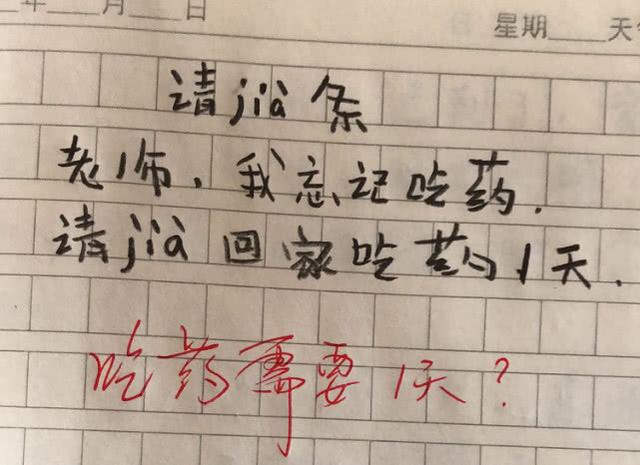 年___月___日
星期___天
请jià条
老师，我忘记吃药.
请jià回家吃药1天.
吃药需要1天？